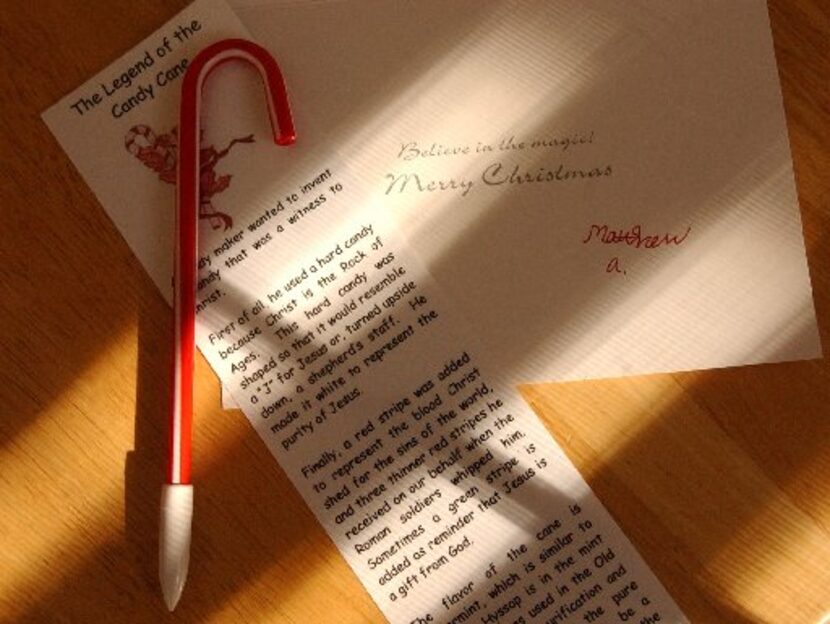 The Legend of the
Candy Cane
maker wanted to invent
that was a witness to
First of all, he used a hard candy
because Christ is the Rock of
Ages. This hard candy was
shaped so that it would resemble
a "J" for Jesus or, turned upside
down, a shepherd's staff. He
made it white to represent the
purity of Jesus.
Finally, a red stripe was added
to represent the blood Christ
shed for the sins of the world,
and three thinner red stripes he
received on our behalf when the
Roman soldiers whipped him.
Sometimes a green stripe is
added as reminder that Jesus is
a gift from God.
The flavor of the cane is
which is similar to
Hyssop is in the mint
used in the Old
and
the pure
be a
the
Believe in the magic!
Merry Christmas
Matthew
a.